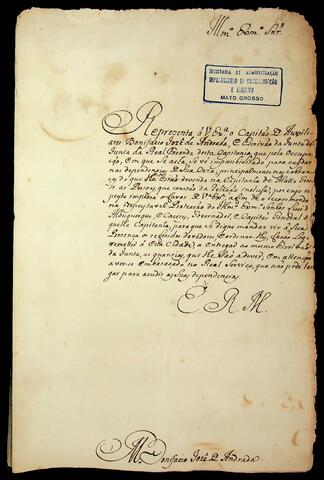 Illmº Exmº Snrº
SECRETARIA DE ADMINISTRAÇÃO
DEPARTAMENTO DE DOCUMENTAÇÃO
E ARQUIVO
MATO GROSSO
Reprezenta, á V. Exª o Capitão D Auxili-
ares Bonifacio Jozé de Andrada, e Escrivão da Junta da
Junta da Real Fazenda desta Capitania, que pela Occupa-
ção, em que se acha, se vê impossibilitado para cuidar
nas dependencias, D Sua Caza, principalmente nas cobran-
ças do que lhe estão devendo na Capitania de Matto Gros-
so as Pessoas que constão da Relação incluza, por cujo res-
peito implora o favor de V. Exª, a fim de o recommendar
na respeitavel Protecção do Illmº Exmº Senhor
Albuquerque, e Caceres, Governador, e Capitão General da-
quella Capitania, para que se digne mandar vir á Sua
Prezença os referidos devedores, e ordenar lhes
remetão á esta Cidade, a entregar ao mesmo Escrivão
da Junta, as quantias, que lhe são a dever, em attenção
a ver-se embaraçado no Real Serviço, que não pode lar-
gar para acudir as suas dependencias.
E. R. M.
Bonifacio Jozê D Andrada.